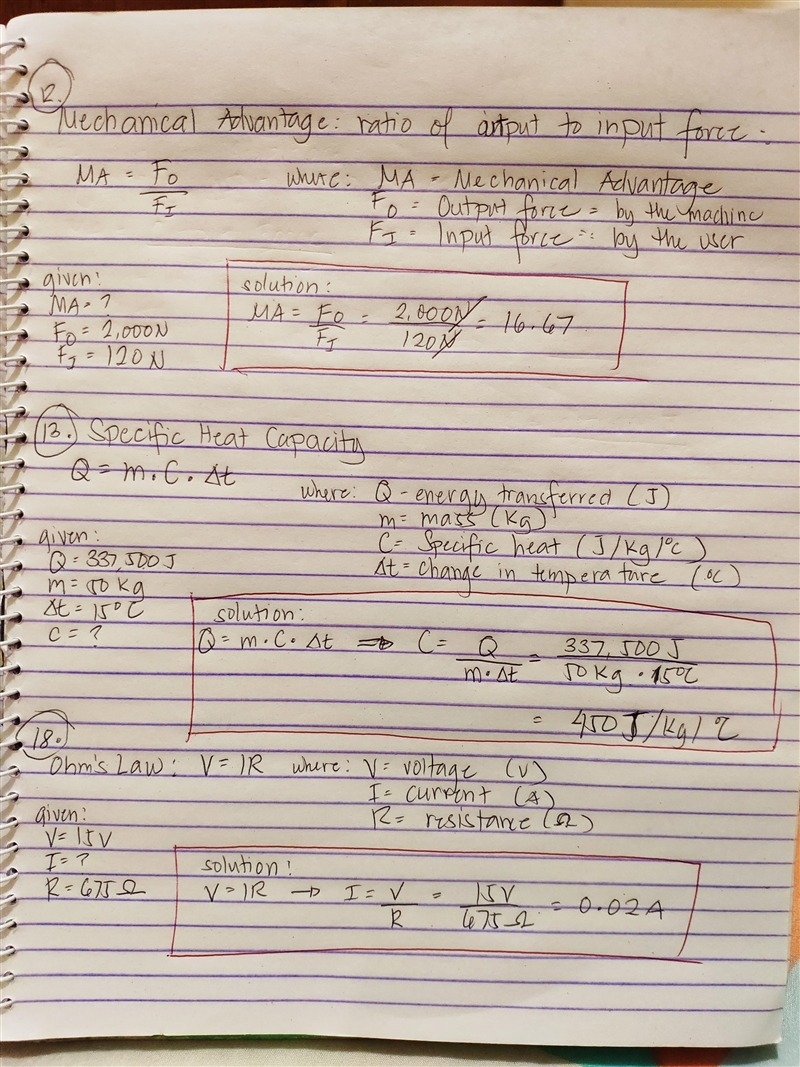 12.
Mechanical Advantage: ratio of output to input force.
MA = Fo/FI where: MA = Mechanical Advantage
Fo = Output force = by the machine
FI = Input force = by the user
given:
MA = ?
Fo = 2,000N
FI = 120N
solution:
MA = Fo/FI = 2,000N/120N = 16.67
13. Specific Heat Capacity
Q = m · C · Δt
where: Q - energy transferred (J)
m = mass (Kg)
C = Specific heat (J/Kg/°C)
Δt = change in temperature (°C)
given:
Q = 337,500 J
m = 50 Kg
Δt = 15°C
C = ?
solution:
Q = m · C · Δt ⇒ C = Q/m·Δt = 337,500 J/50 Kg · 15°C
= 450 J/Kg/°C
18.
Ohm's Law: V = IR where: V = voltage (V)
I = current (A)
R = resistance (Ω)
given:
V = 15V
I = ?
R = 675 Ω
solution:
V = IR → I = V/R = 15V/675 Ω = 0.02A